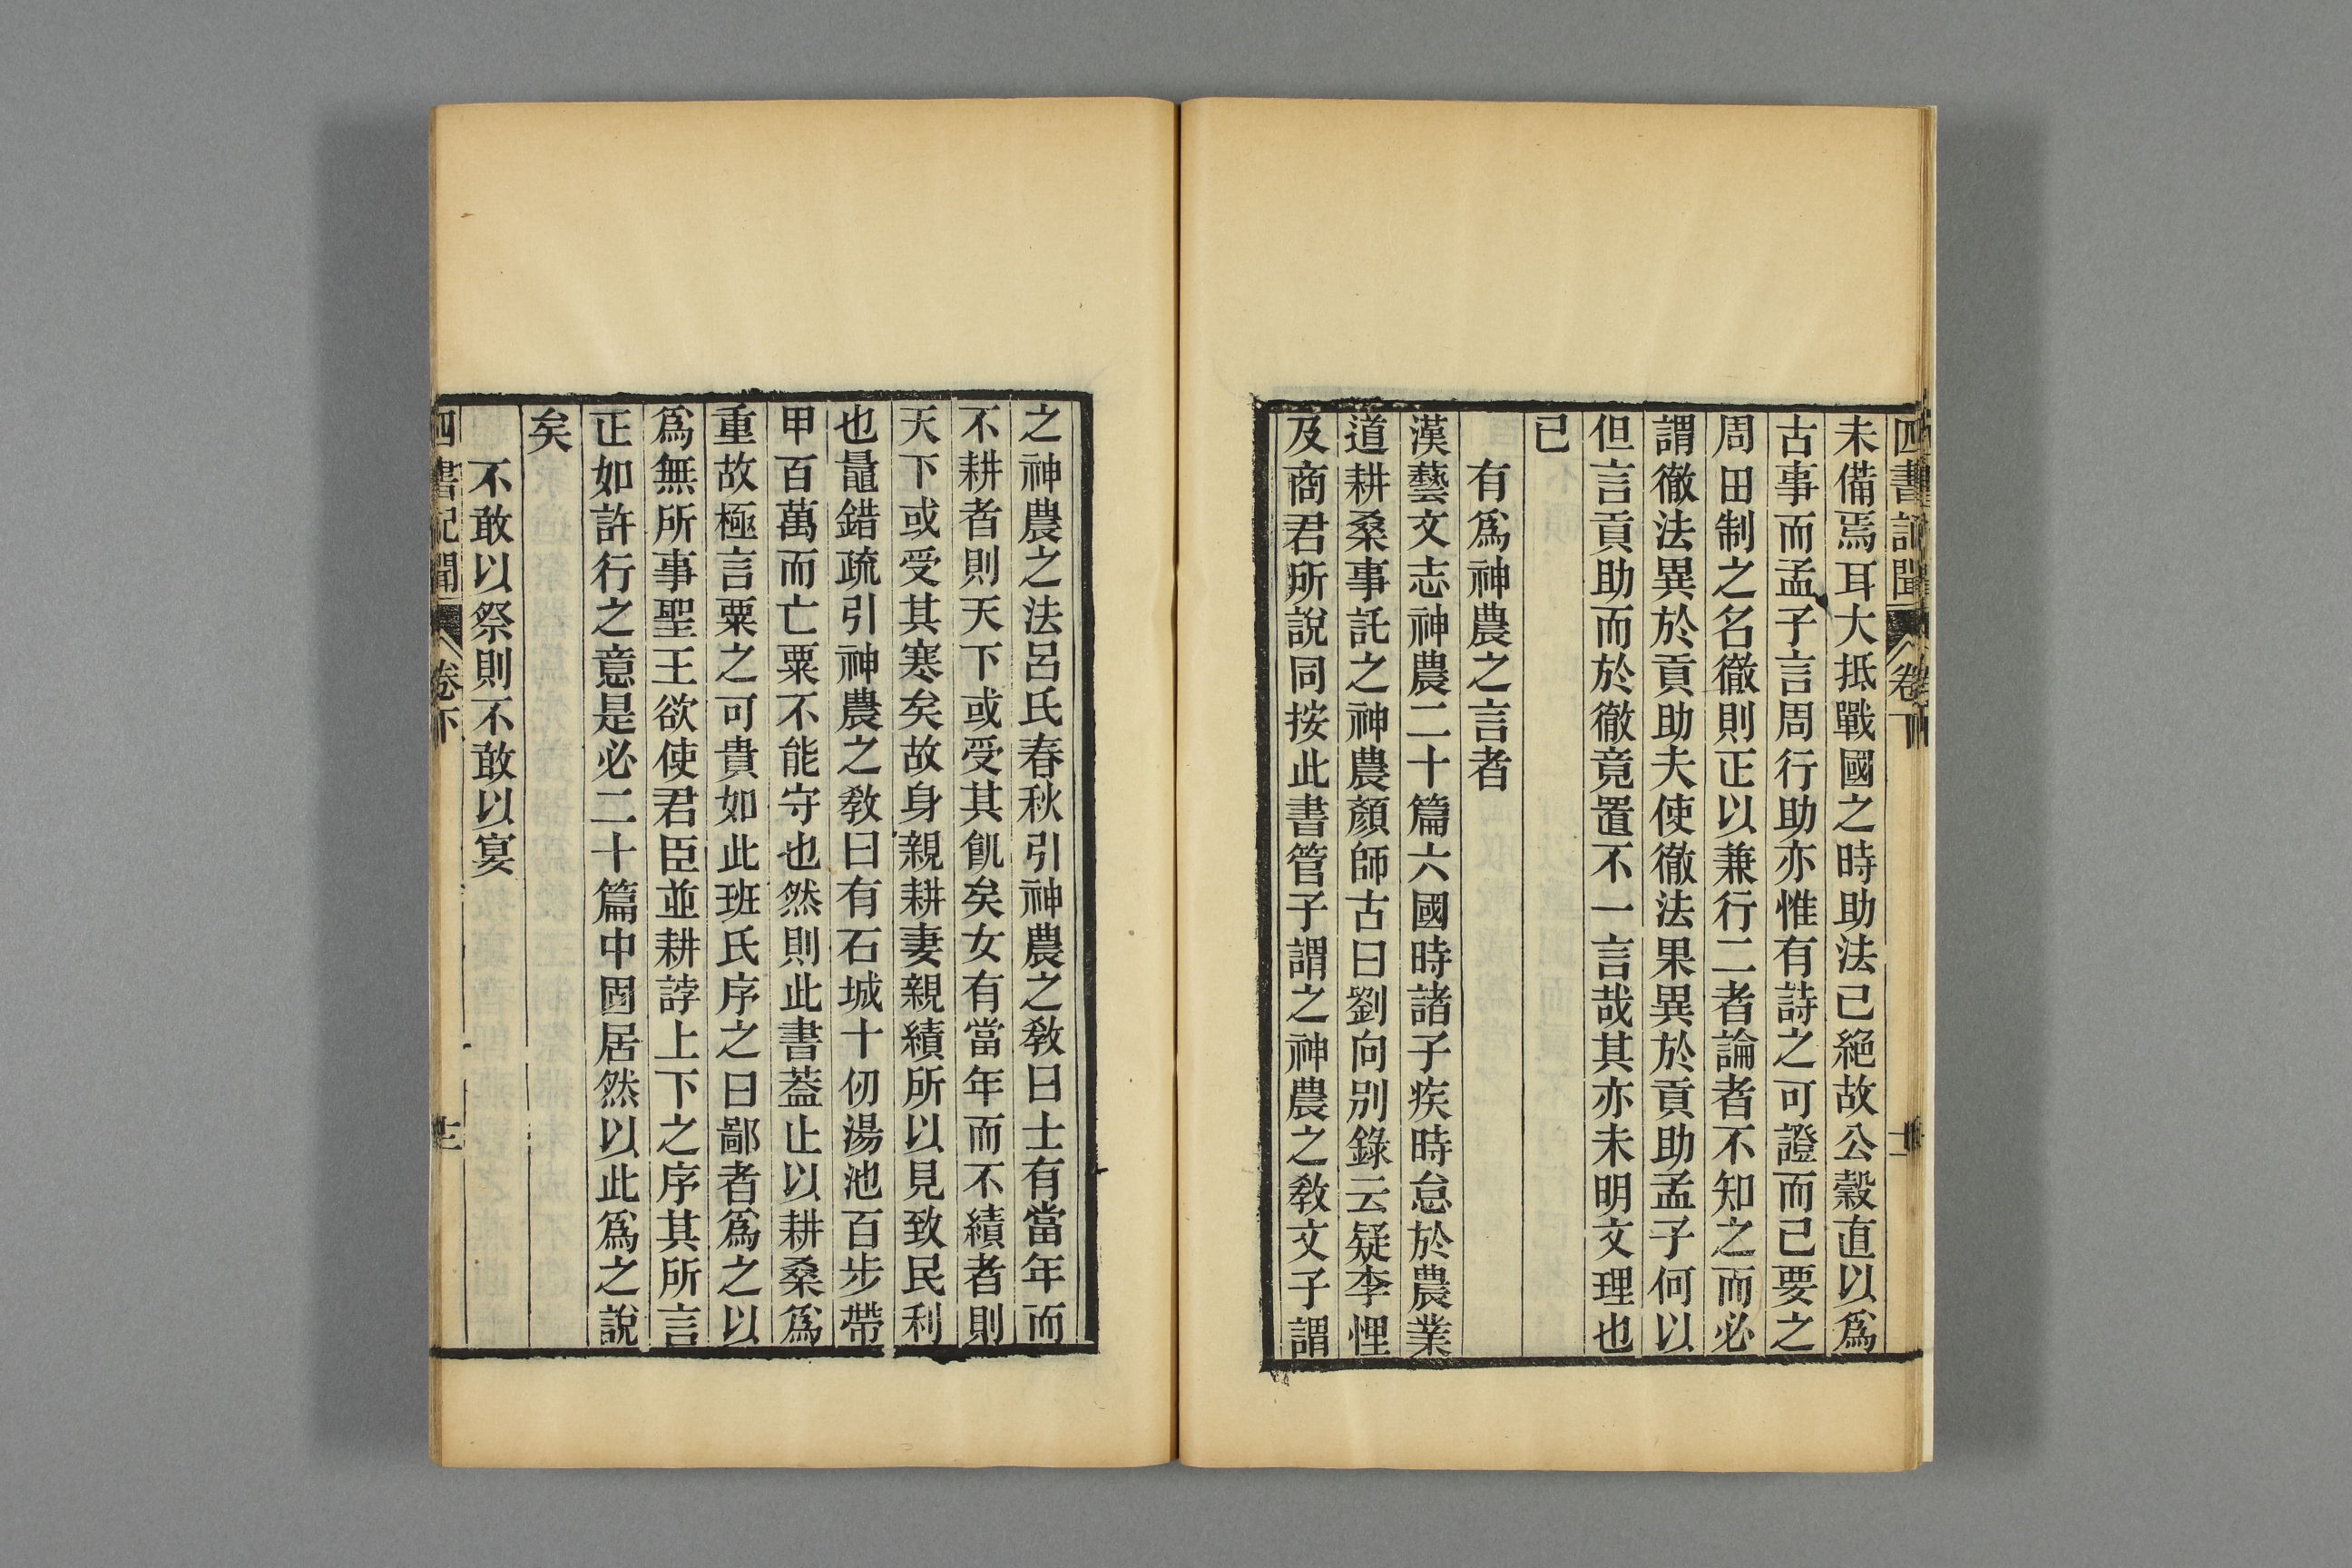 四書記聞 卷下
未備焉耳大抵戰國之時助法已絕故公穀直以爲
古事而孟子言周行助亦惟有詩之可證而已要之
周田制之名徹則正以兼行二者論者不知之而必
謂徹法異於貢助夫使徹法果異於貢助孟子何以
但言貢助而於徹竟置不一言哉其亦未明文理也
已
有爲神農之言者
漢藝文志神農二十篇六國時諸子疾時怠於農業
道耕桑事託之神農顏師古曰劉向別錄云疑李悝
及商君所說同按此書管子謂之神農之敎文子謂
之神農之法呂氏春秋引神農之敎曰士有當年而
不耕者則天下或受其飢矣女有當年而不績者則
天下或受其寒矣故身親耕妻親績所以見致民利
也鼂錯疏引神農之敎曰有石城十仞湯池百步帶
甲百萬而亡粟不能守也然則此書蓋止以耕桑爲
重故極言粟之可貴如此班氏序之曰鄙者爲之以
爲無所事聖王欲使君臣並耕誖上下之序其所言
正如許行之意是必二十篇中固居然以此爲之說
矣
不敢以祭則不敢以宴
四書記聞 卷下